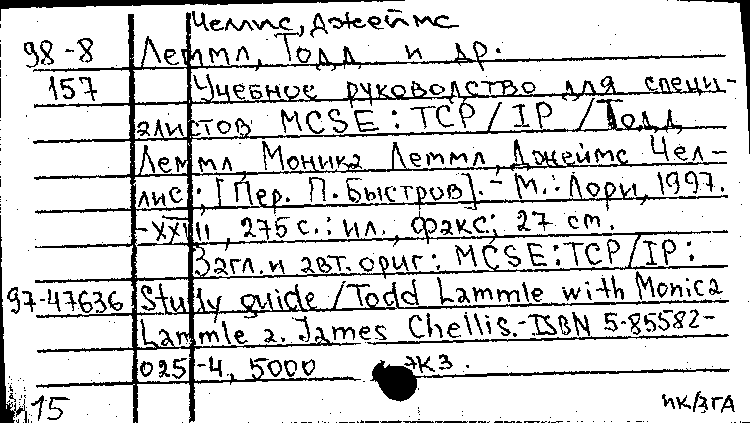 Челлис, Джеймс
98-8 Леммл, Тодд и др.
157 Учебное руководство для специ-
алистов MCSE: TCP/IP /Тодд
Леммл, Моника Леммл, Джеймс Чел-
лис; [Пер. П. Быстров]. - М.: Лори, 1997.
-XXVIII, 275 с.: ил., факс; 27 см.
Загл. и авт. ориг: MCSE: TCP/IP:
97-47636 Study guide /Todd Lammle with Monica
Lammle a. James Chellis.-ISBN 5-85582-
025-4, 5000 экз.
15 ПК/ЗГА